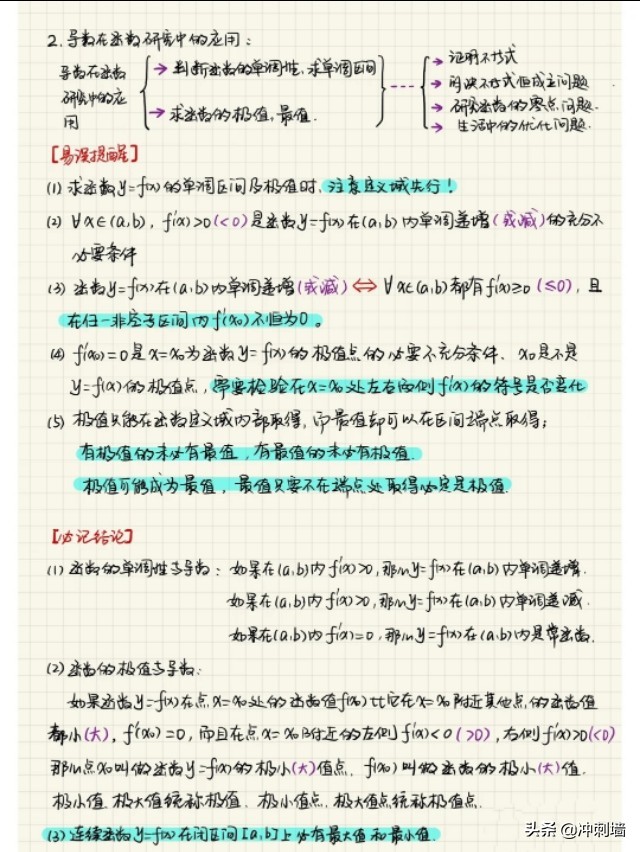 2. 导数在函数研究中的应用：
导数在函数
研究中的应
用
→ 判断函数的单调性, 求单调区间
→ 求函数的极值, 最值.
→ 证明不等式
→ 解决不等式恒成立问题
→ 研究函数的零点问题.
→ 生活中的优化问题.
[易误提醒]
(1) 求函数y=f(x)的单调区间及极值时, 注意定义域先行！
(2) ∀x∈(a,b), f'(x)>0(<0)是函数y=f(x)在(a,b)内单调递增(或减)的充分不
必要条件
(3) 函数y=f(x)在(a,b)内单调递增(或减) ⇔ ∀x∈(a,b)都有f'(x)≥0 (≤0), 且
在任一非空子区间内f'(x₀)不恒为0。
(4) f'(x₀)=0是x=x₀为函数y=f(x)的极值点的必要不充分条件、x₀是不是
y=f(x)的极值点, 需要检验在x=x₀处左右两侧f'(x)的符号是否变化
(5) 极值只能在函数定义域内部取得, 而最值却可以在区间端点取得;
有极值的未必有最值, 有最值的未必有极值.
极值可能成为最值, 最值只要不在端点处取得必定是极值.
[必记结论]
(1) 函数的单调性与导数: 如果在(a,b)内f'(x)>0, 那么y=f(x)在(a,b)内单调递增.
如果在(a,b)内f'(x)>0, 那么y=f(x)在(a,b)内单调递减.
如果在(a,b)内f'(x)=0, 那么y=f(x)在(a,b)内是常函数.
(2) 函数的极值与导数:
如果函数y=f(x)在点x=x₀处的函数值f(x₀)比它在x=x₀附近其他点的函数值
都小(大), f'(x₀)=0, 而且在点x=x₀附近的左侧f'(x)<0(>0), 右侧f'(x)>0(<0)
那么点x₀叫做函数y=f(x)的极小(大)值点, f(x₀)叫做函数的极小(大)值.
极小值.极大值统称极值. 极小值点.极大值点统称极值点.
(3) 连续函数y=f(x)在闭区间[a,b]上必有最大值和最小值.
头条 @冲刺墙